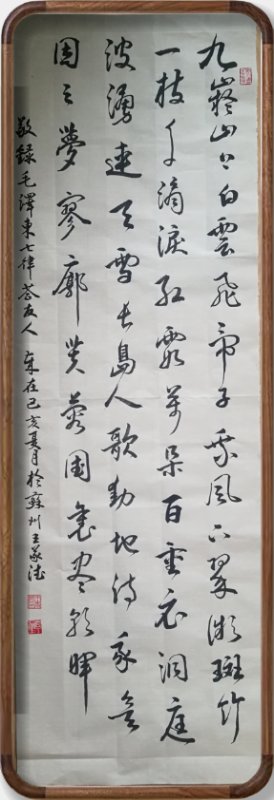 九嶷山上白雲飛帝子乘風下翠微斑竹
一枝千滴淚紅霞萬朵百重衣洞庭
波湧連天雪長島人歌動地詩我欲
因之夢寥廓芙蓉國裏盡朝暉
敬錄毛澤東七律答友人 歲在己亥夏月於蘇州王